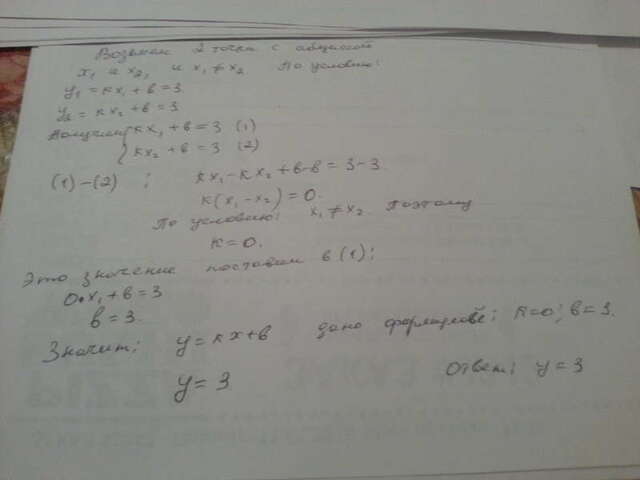 Возьмем 2 точки с абциссой
x₁ и x₂, и x₁ ≠ x₂ По условию:
y₁ = kx₁ + b = 3
y₂ = kx₂ + b = 3
Получим { kx₁ + b = 3 (1)
kx₂ + b = 3 (2)
(1) – (2) ; kx₁ – kx₂ + b – b = 3 – 3
k(x₁ – x₂) = 0.
По условию: x₁ ≠ x₂. Поэтому
k = 0.
Это значение поставим в (1):
0·x₁ + b = 3
b = 3.
Значит: y = kx + b дано формулой: k = 0; b = 3.
y = 3
Ответ: y = 3